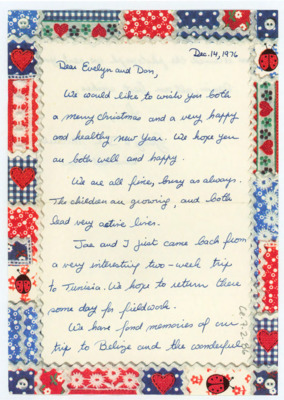 Dec. 14, 1976
Dear Evelyn and Don,
We would like to wish you both
a merry christmas and a very happy
and healthy new year. We hope you
are both well and happy.
We are all fine, busy as always.
The children are growing, and both
lead very active lives.
Joe and I just came back from
a very interesting two-week trip
to Tunisia. We hope to return there
some day for fieldwork.
We have fond memories of our
trip to Belize and the wonderful